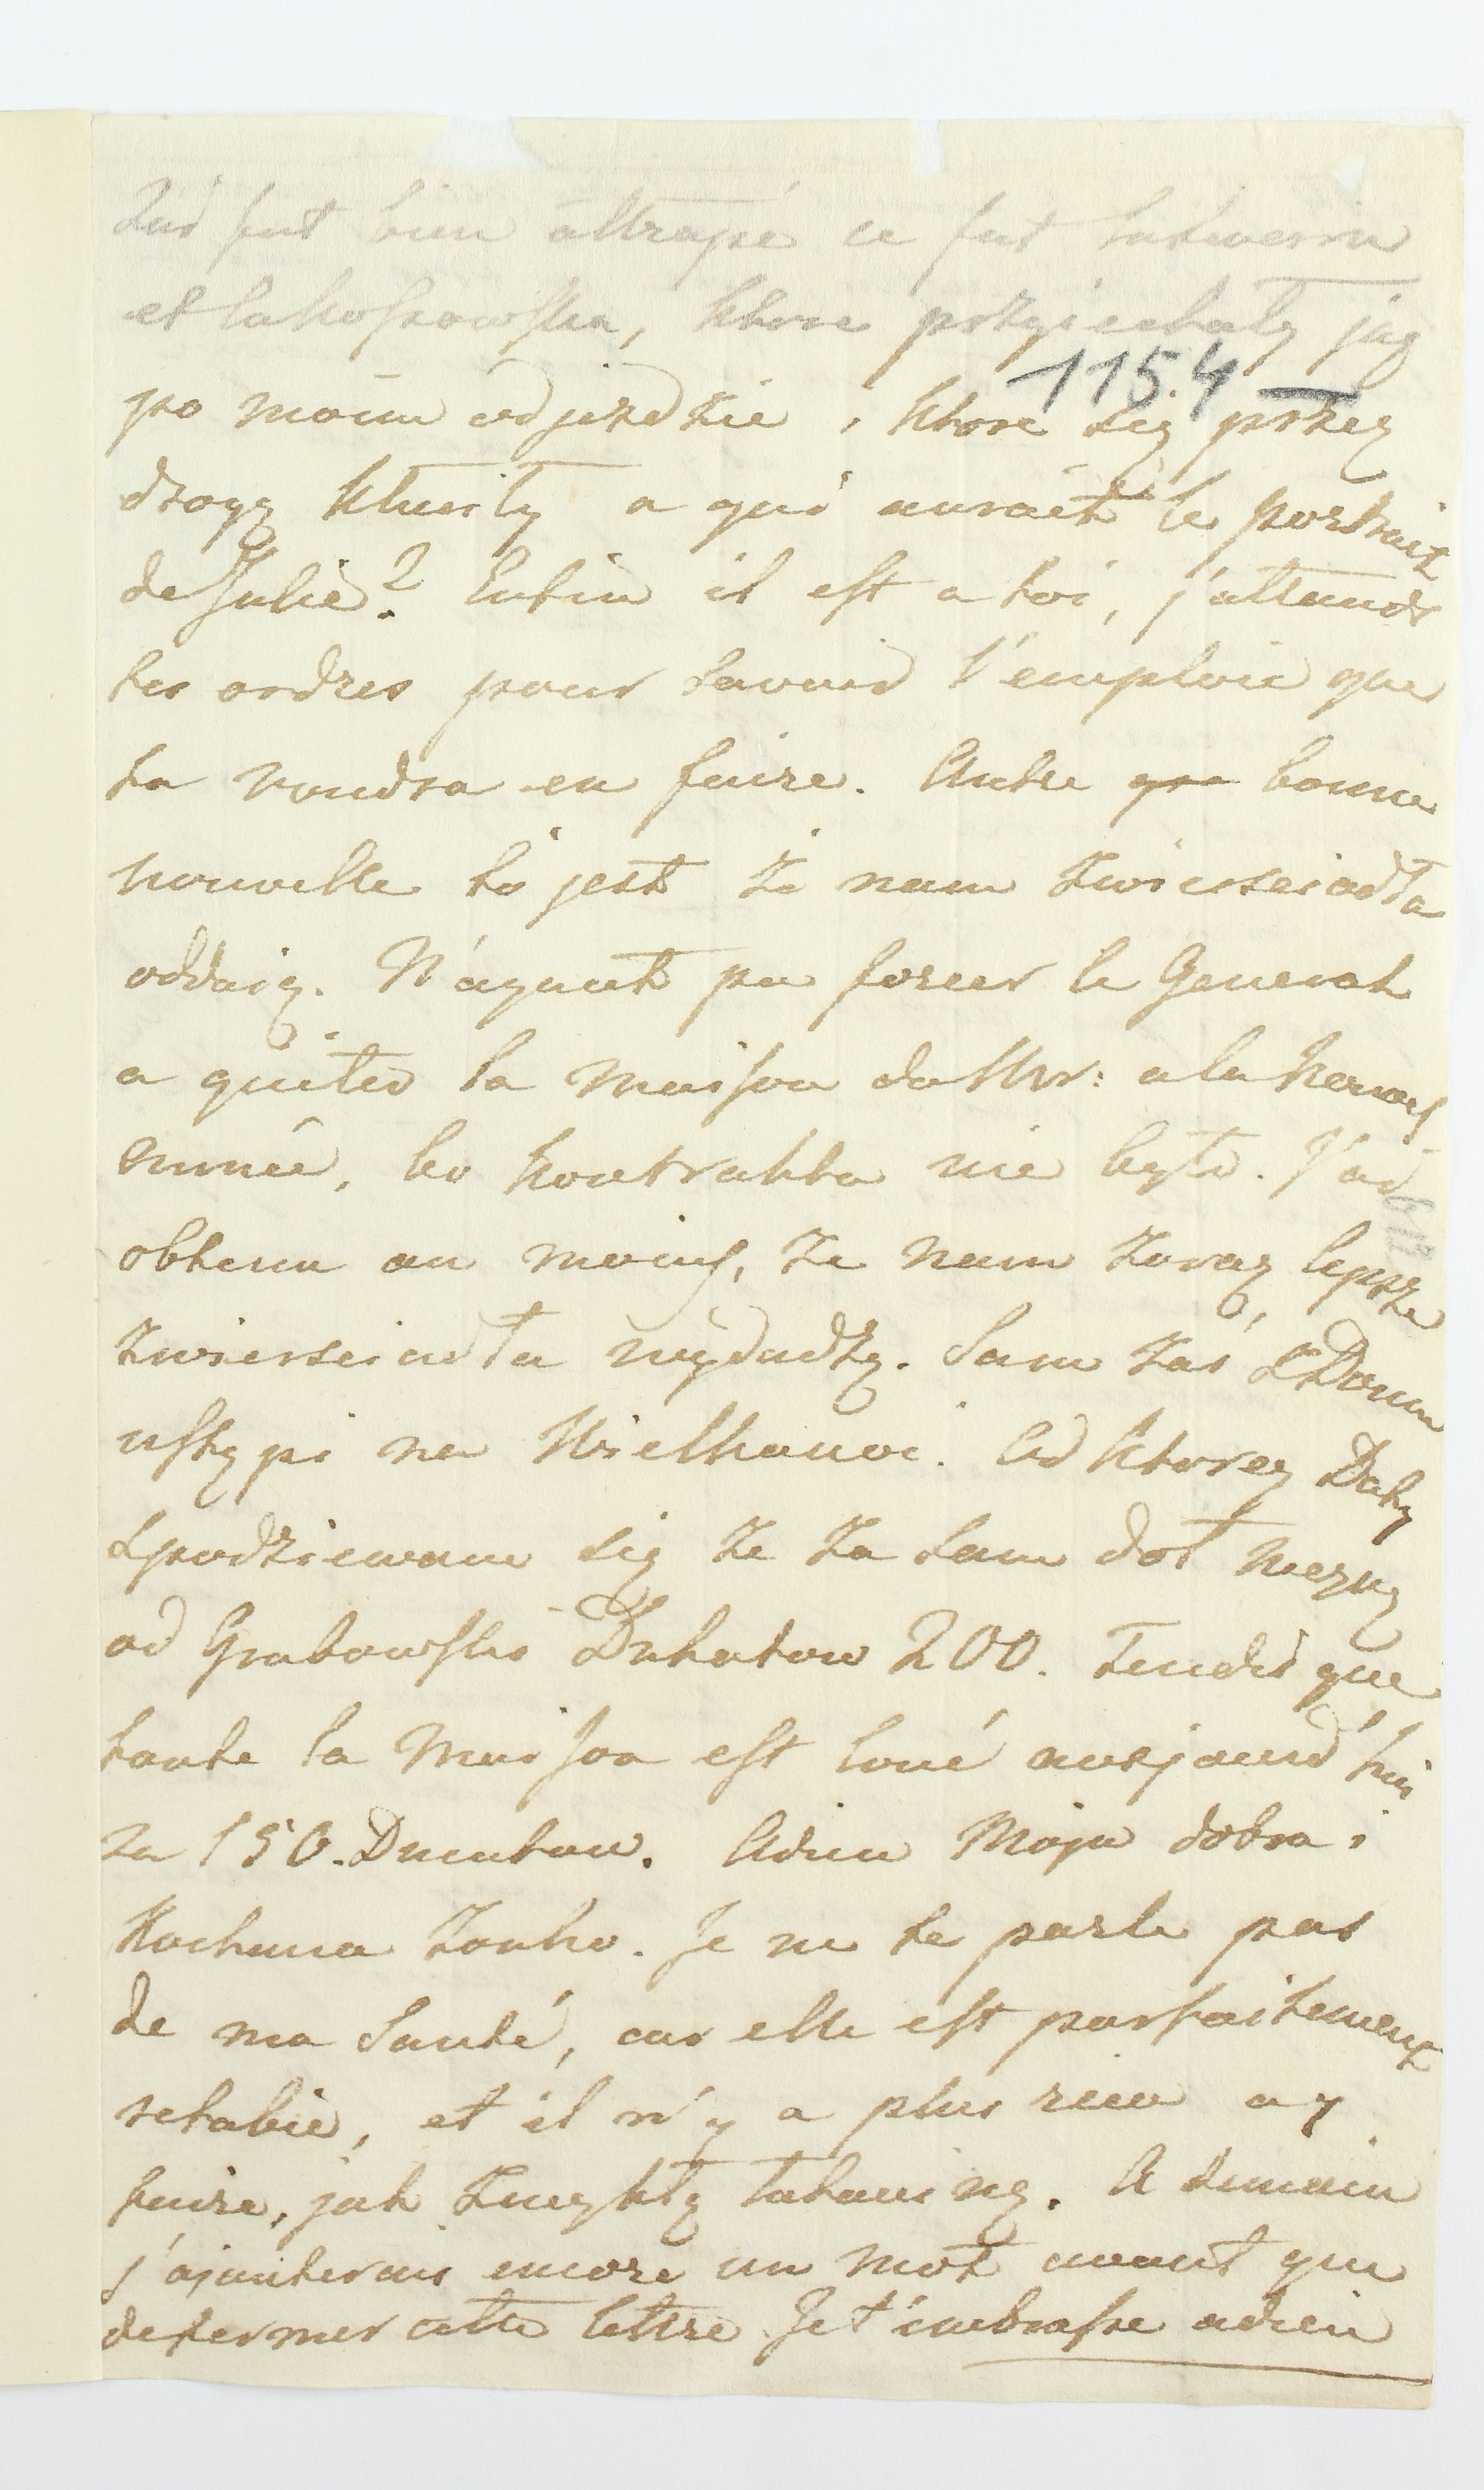 qui fut bien attrapé ce fut
et la Kossowska, ktore przyiechały już
115.4
po moim odjezdzie, ktore się przez
drogę kłuciły a qui aurait le portrait
de Julie? Enfin il est a toi, j'attands
tes ordres pour savoir l'emploie que
tu voudra en faire. Autre bonne
nouvelle to jest że nam Zwierseiadła
oddaią. N'ayant pu forcer le General
a quiter la maison
année, bo kontraktu nie było. J'ai
obtenu au moins, że nam zaraz lepsze
Zwierseiadła wydadzą. Sam zaś z Domu
ustąpi na Wielkanoc. Od ktorey Daty
spodziewam się że za sam doł wezmę
od Grabowski Dukatow 200. Tendis que
toute la Maison est loué aurjourd'hui
za 150. Ducatow. Adieu Moja dobra i
Kochana Zonko. Je ne te parle pas
de ma santé, car elle est parfaitement
retabie, et il n'y a plus rien a y
faire, jak Zwykłą A demain
j'ajouterais encore un mot avant que
defermer cette lettre. Je t'embrasse adieu